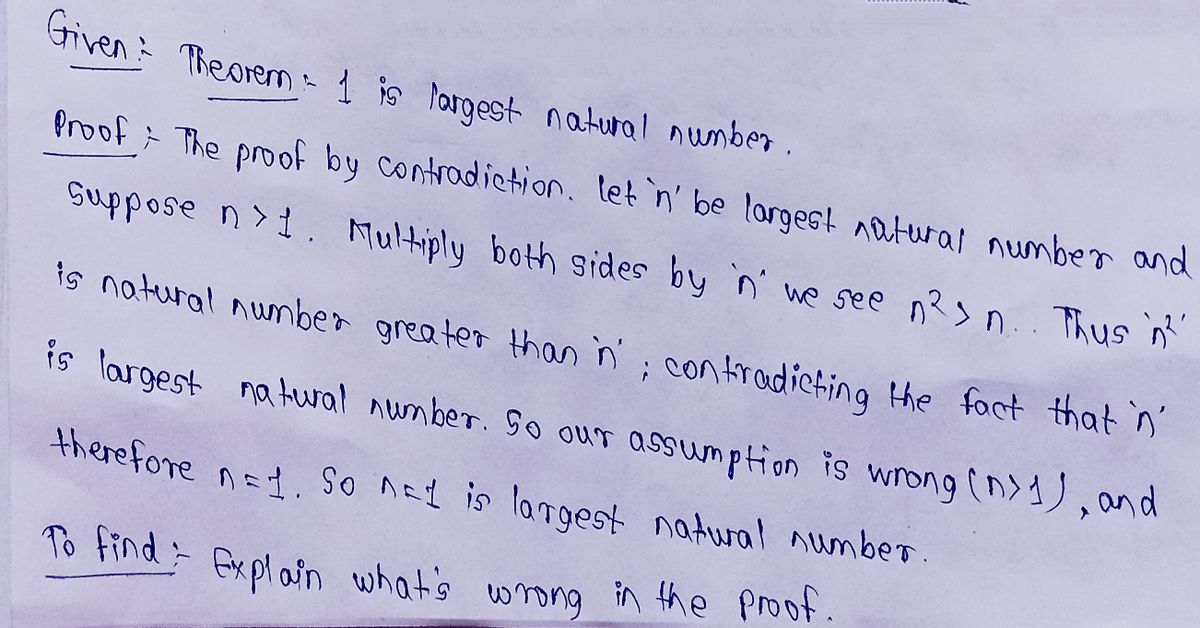 Given :- Theorem :- 1 is largest natural number.
Proof :- The proof by contradiction. let 'n' be largest natural number and
suppose n > 1. Multiply both sides by 'n' we see n² > n.. Thus 'n²'
is natural number greater than 'n' ; contradicting the fact that 'n'
is largest natural number. So our assumption is wrong (n>1), and
therefore n=1. So n=1 is largest natural number.
To find :- Explain what's wrong in the proof.